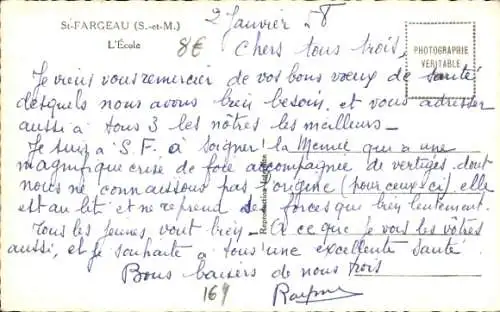 St-FARGEAU (S.-et-M.)
L'École
8€
2 Janvier 58
Chers tous trois,
PHOTOGRAPHIE
VÉRITABLE
Je viens vous remercier de vos bons vœux de santé
desquels nous avons bien besoin, et vous adresser
aussi à tous 3 les nôtres les meilleurs -
Je suis à S.F. à soigner la Mémée qui a une
magnifique crise de foie accompagnée de vertiges dont
nous ne connaissons pas l'origine (pour ceux-ci) elle
est au lit et ne reprend des forces que bien lentement.
Tous les jeunes vont bien - A ce que je vois les vôtres
aussi, et je souhaite à tous une excellente santé.
Bons baisers de nous trois
169
Reproduction interdite